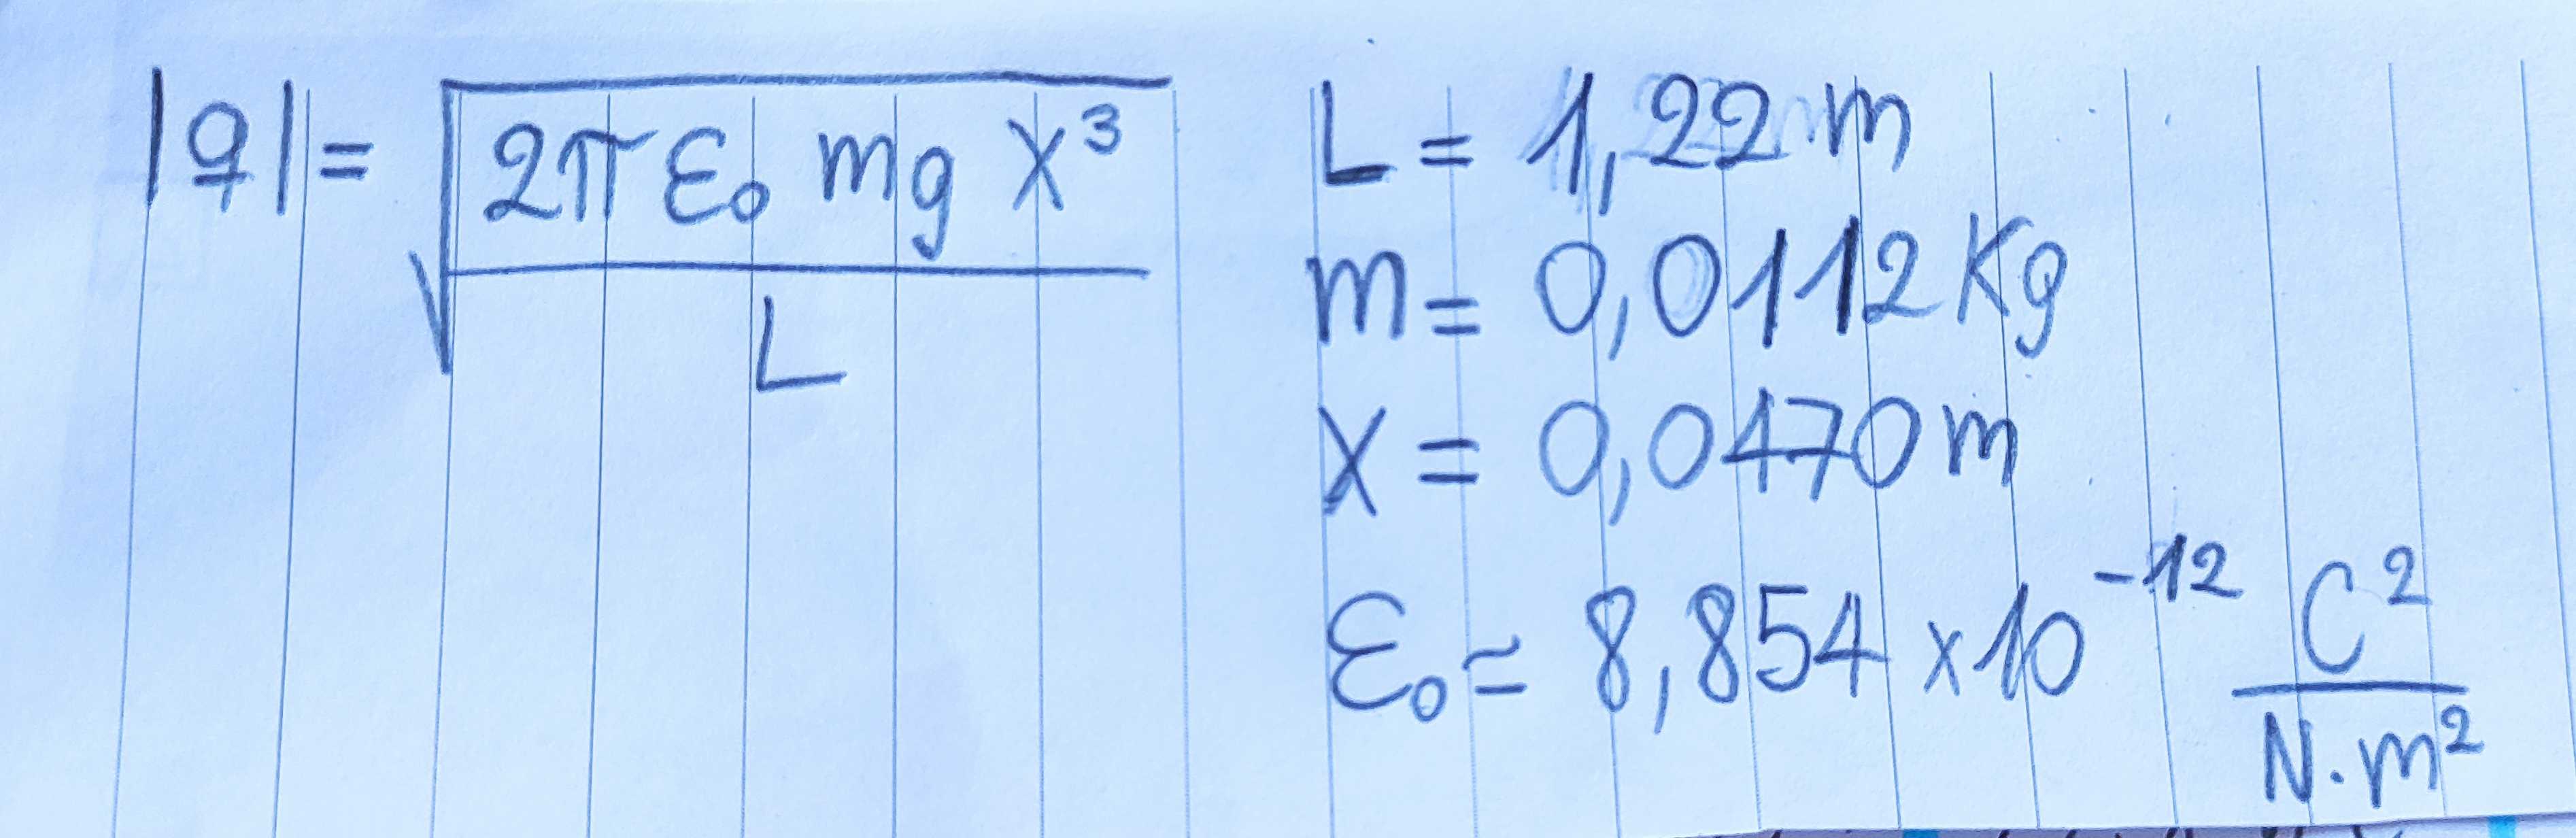 |q| = √(2π ε₀ mg x³ / L)
L = 1,22 m
m = 0,0112 Kg
x = 0,0470 m
ε₀ ≃ 8,854 × 10⁻¹² C² / N·m²